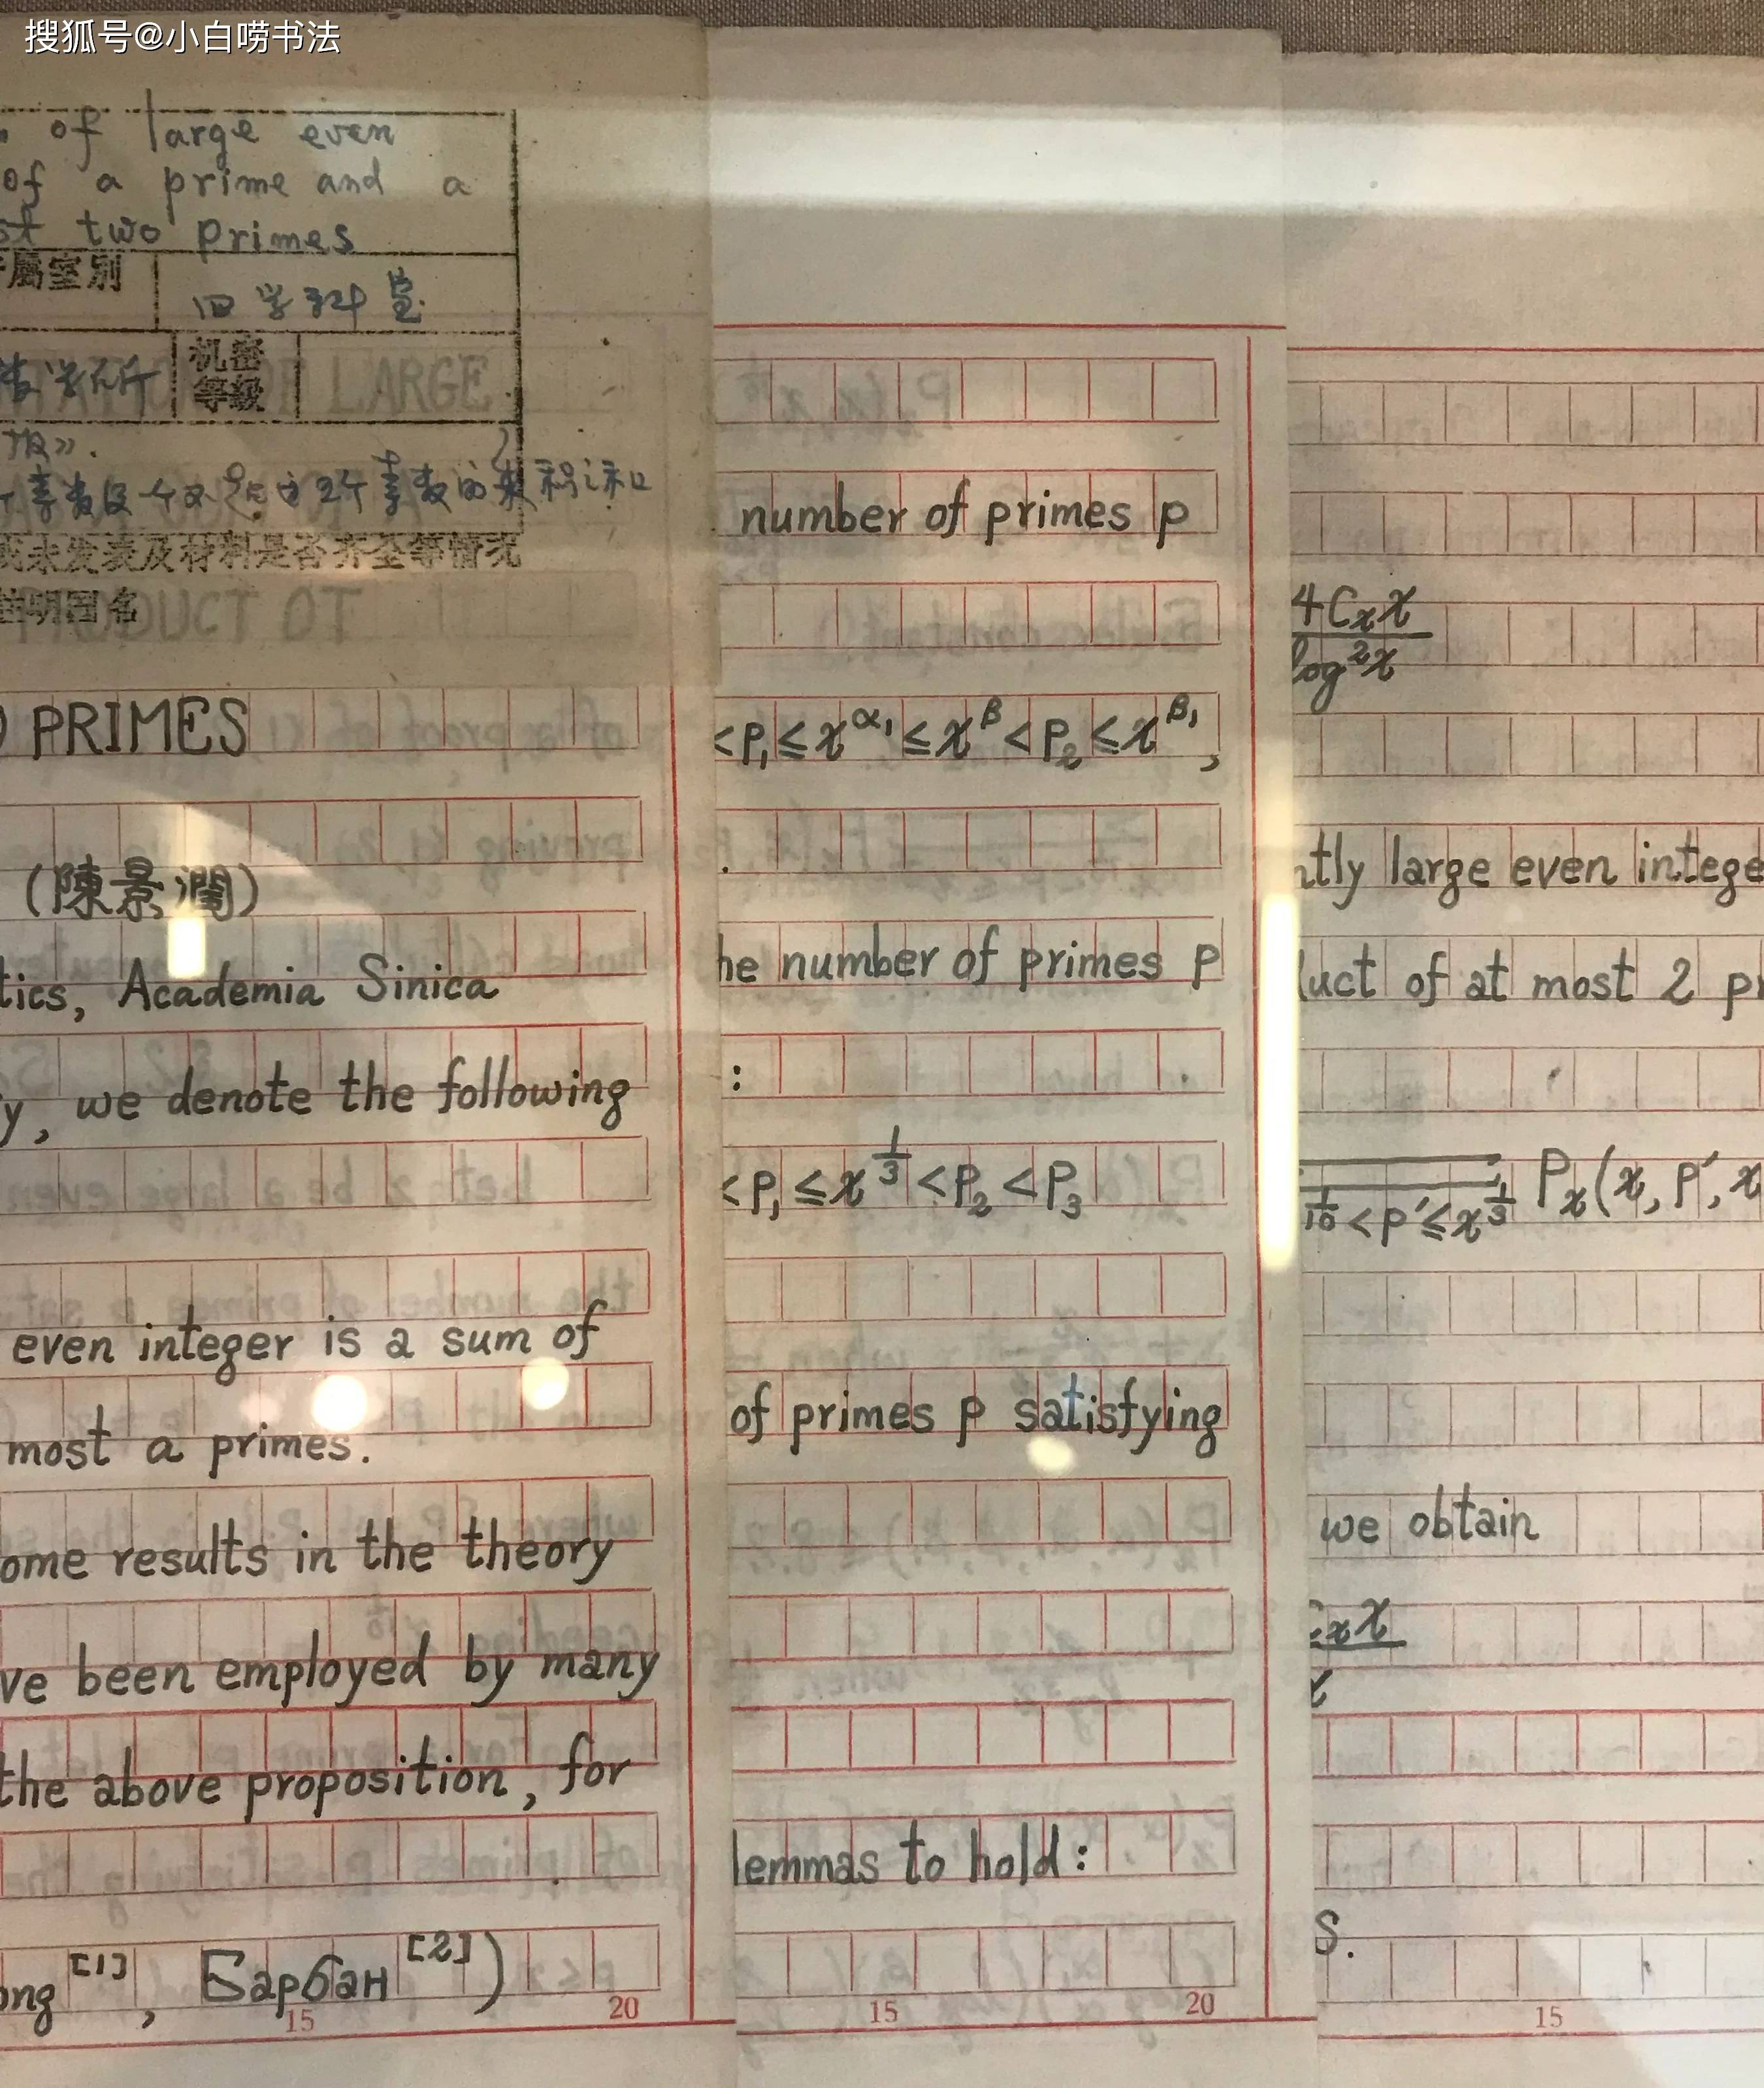 搜狐号@小白唠书法
of large even
of a prime and a
st two primes
属室别
旧学科室
机密
等级
LARGE
报》.
既未发表及材料是否齐全等情况
PRODUCT OT
PRIMES
(陳景潤)
tics, Academia Sinica
y, we denote the following
even integer is a sum of
most a primes.
ome results in the theory
ve been employed by many
the above proposition, for
ong[1], Барбан[2])
15
20
number of primes p
<p₁≤x^α₁≤x^β<p₂≤x^β₁,
.
he number of primes p
:
<p₁≤x^(1/3)<p₂<p₃
of primes p satisfying
lemmas to hold:
15
20
4Cₓx
log²x
ntly large even intege
uct of at most 2 pr
1/10<p′≤x^(1/3) Pₓ(x, p′, x
we obtain
Cₓx
x
S.
15